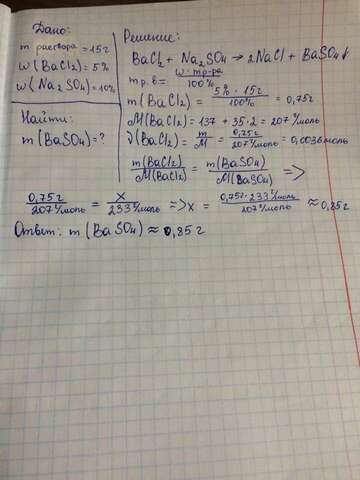 Дано:
m раствора = 15г
ω(BaCl₂) = 5%
ω(Na₂SO₄) = 10%
Найти:
m(BaSO₄) = ?
Решение:
BaCl₂ + Na₂SO₄ → 2NaCl + BaSO₄↓
m р.в = ω · m р-ра / 100%
m(BaCl₂) = 5% · 15г / 100% = 0,75г
M(BaCl₂) = 137 + 35 · 2 = 207 г/моль
ν(BaCl₂) = m / M = 0,75г / 207 г/моль = 0,0036 моль
m(BaCl₂) / M(BaCl₂) = m(BaSO₄) / M(BaSO₄) =>
0,75г / 207 г/моль = x / 233 г/моль => x = 0,75г · 233 г/моль / 207 г/моль ≈ 0,85г
Ответ: m(BaSO₄) ≈ 0,85г